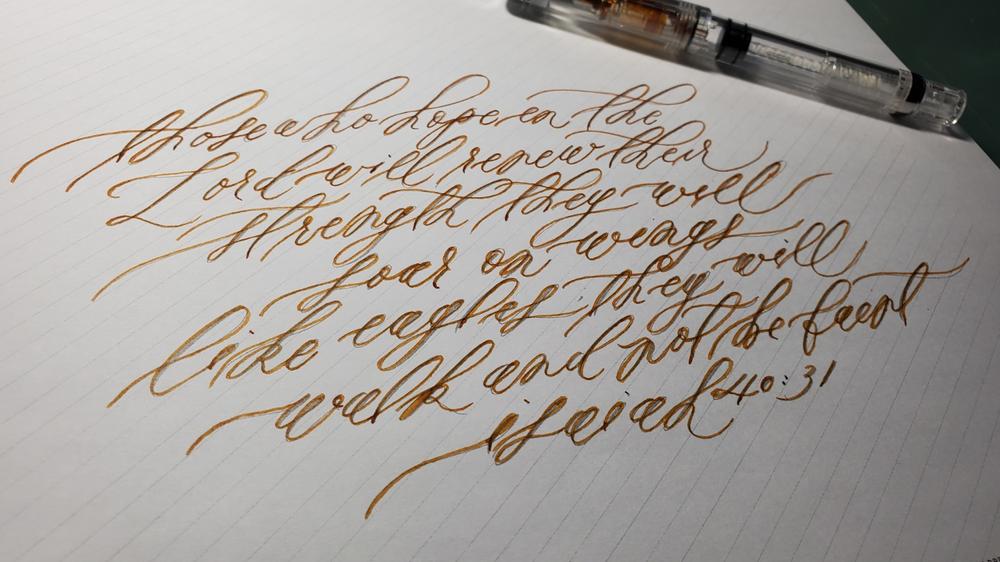 those who hope in the
Lord will renew their
strength they will
soar on wings
like eagles they will
walk and not be faint
isaiah 40:31